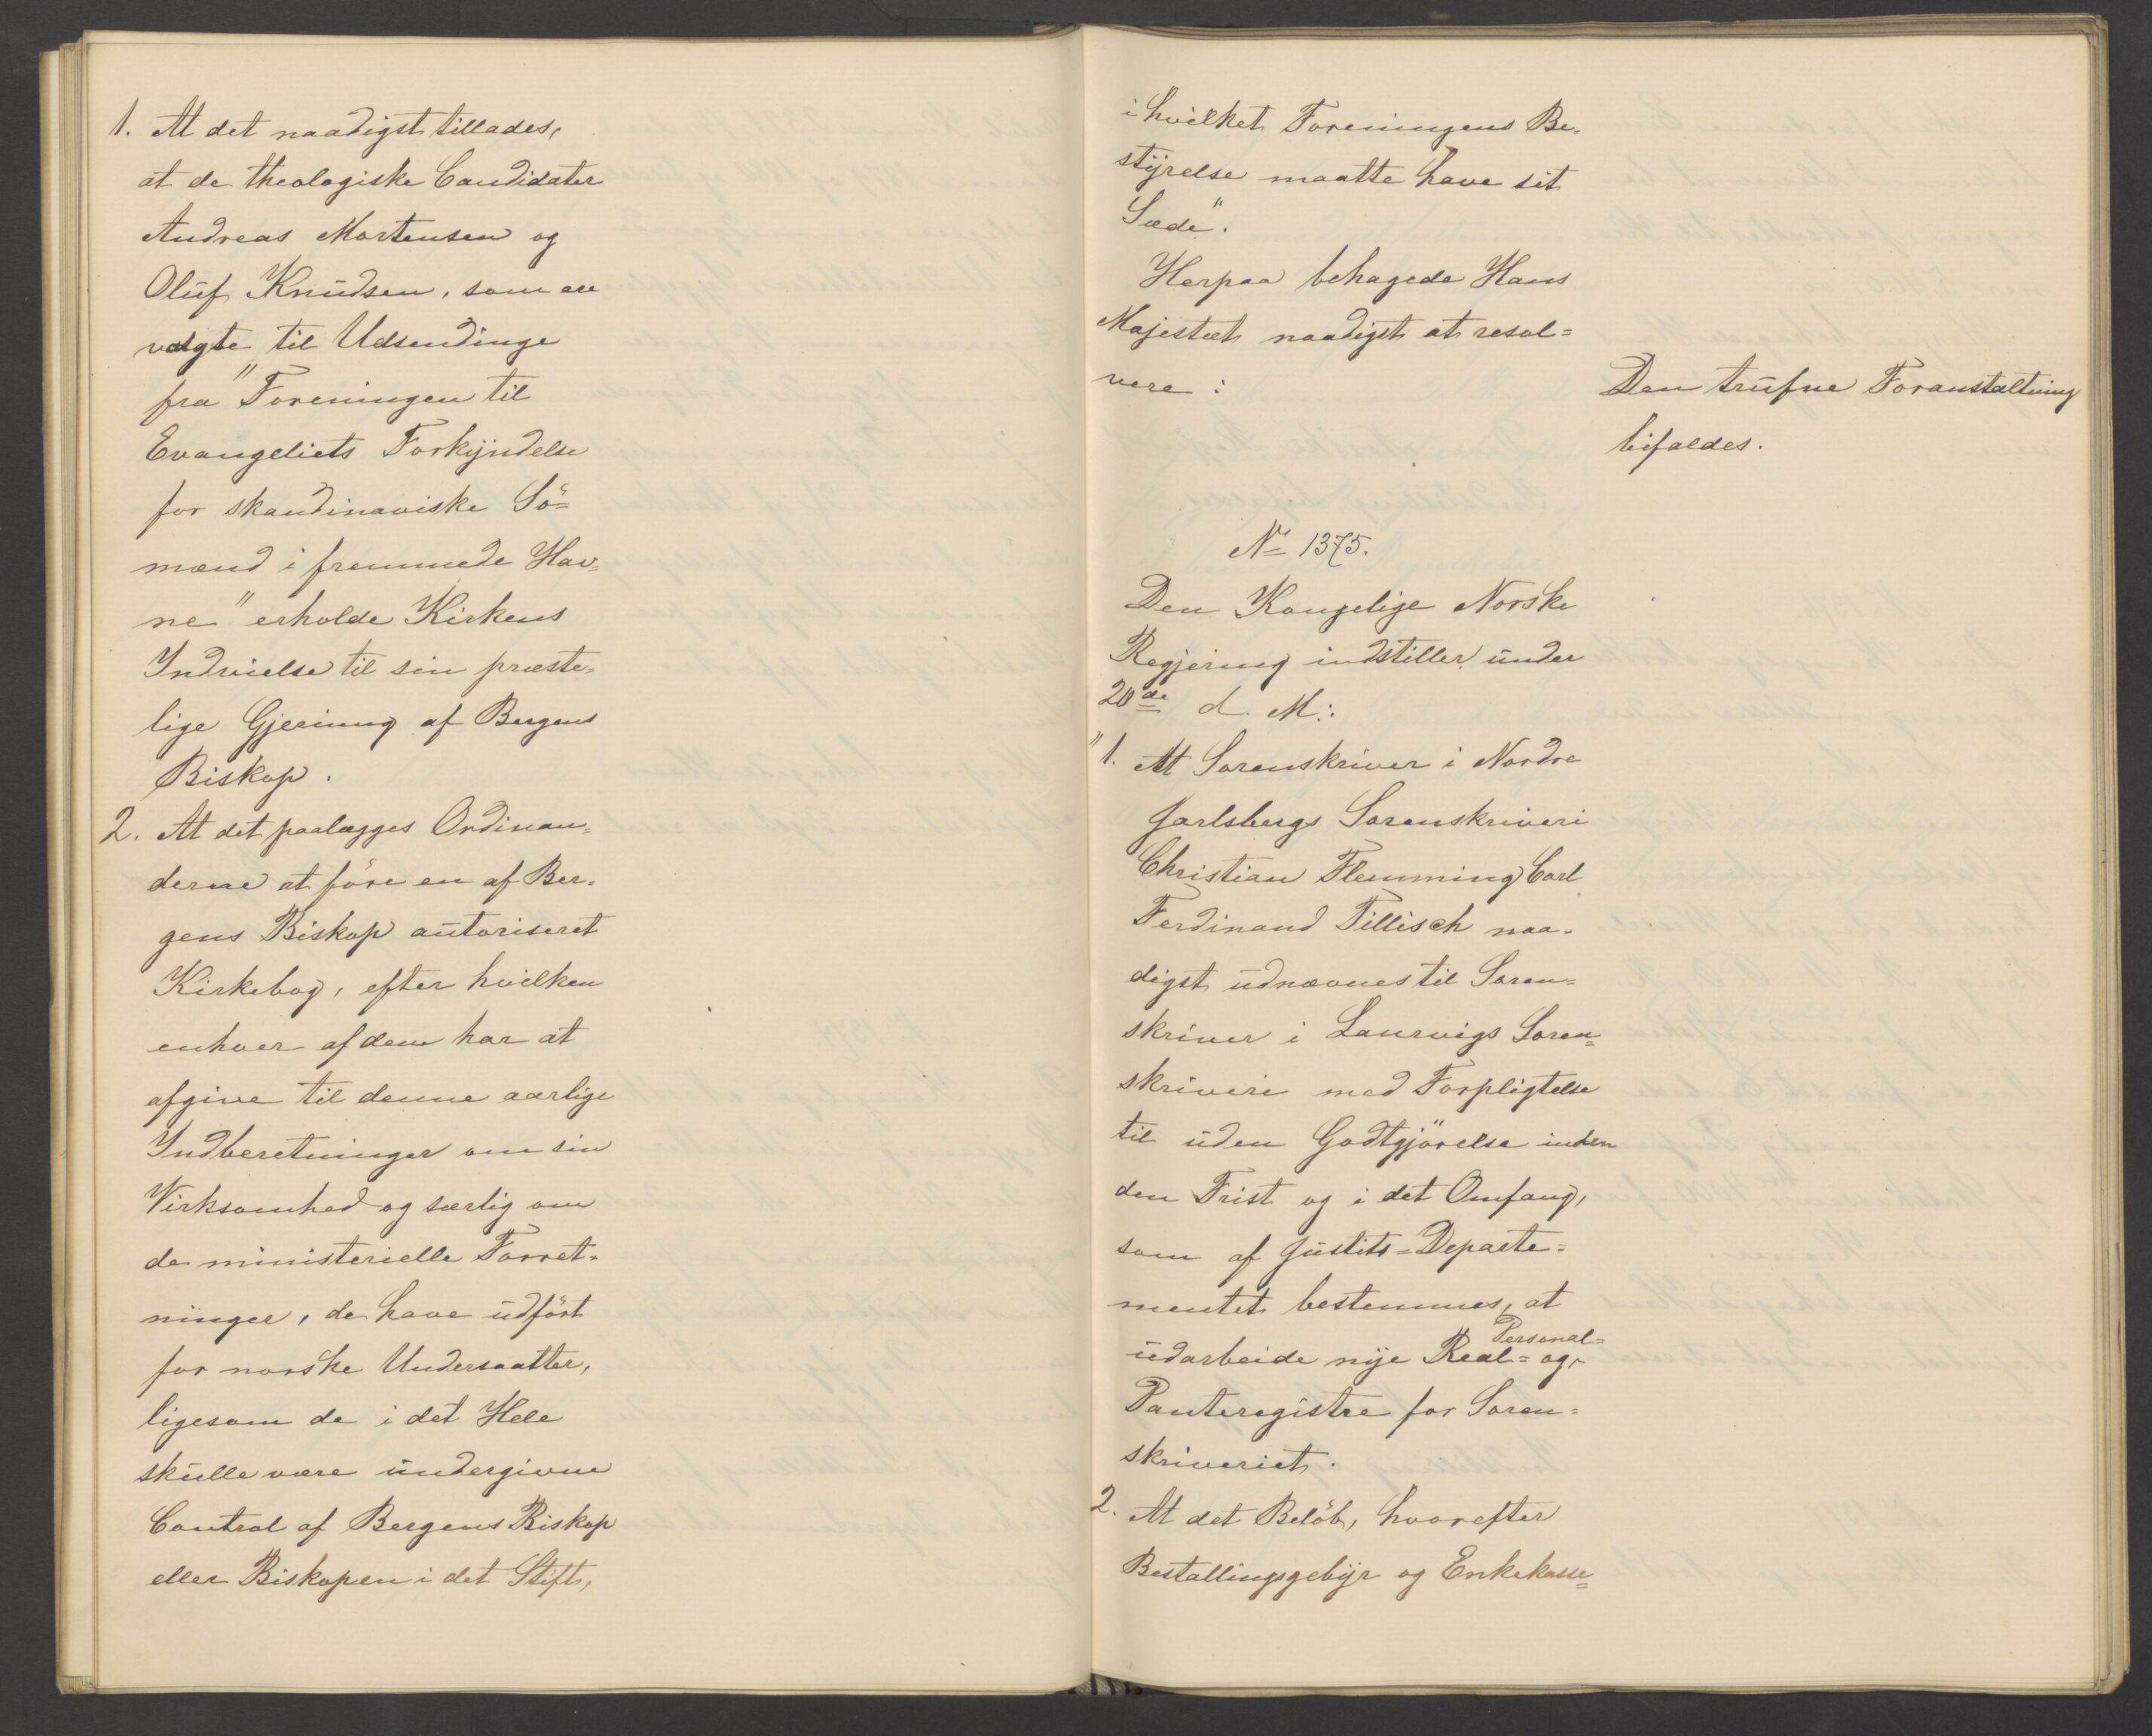 1. At det naadigst tillades,
at de theologiske Candidater
Andreas Mortensen og
Oluf Knudsen, som ere
valgte til Udsendinge
fra "Foreningen til
Evangeliets Forkyndelse
for skandinaviske Sö=
mænd i fremmede Hav=
ne" erholde Kirkens
Indvielse til sin præste=
lige Gjerning af Bergens
Biskop.
2. At det paalægges Ordinan=
derne at före en af Ber=
gens Biskop autoriseret
Kirkebog, efter hvilken
enhver af dem har at
afgive til denne aarlige
Indberetninger om sin
Virksomhed og særlig om
de ministerielle Forret=
ninger, de have udfört
for norske Undersaatter,
ligesom de i det Hele
skulle være undergivne
Control af Bergens Biskop
eller Biskopen i det Stift,
i hvilket Foreningens Be=
styrelse maatte have sit
Sæde".
Herpaa behagede Hans
Majestæt naadigst at resol=
vere:
Den trufne Foranstaltning
bifaldes.
No 1375.
Den Kongelige Norske
Regjering indstiller under
20de d. M.:
"1. At Sorenskriver i Nordre
Jarlsbergs Sorenskriveri
Christian Flemming Carl
Ferdinand Tillisch naa=
digst udnævnes til Soren=
skriver i Laurvigs Soren=
skriveri med Forpligtelse
til uden Godtgjörelse inden
den Frist og i det Omfang,
som af Justits=Departe=
mentet bestemmes, at
udarbeide nye Real= og Personal=
Panteregistre for Soren=
skriveriet.
2. At det Belöb, hvorefter
Bestallingsgebyr og Enkekasse=